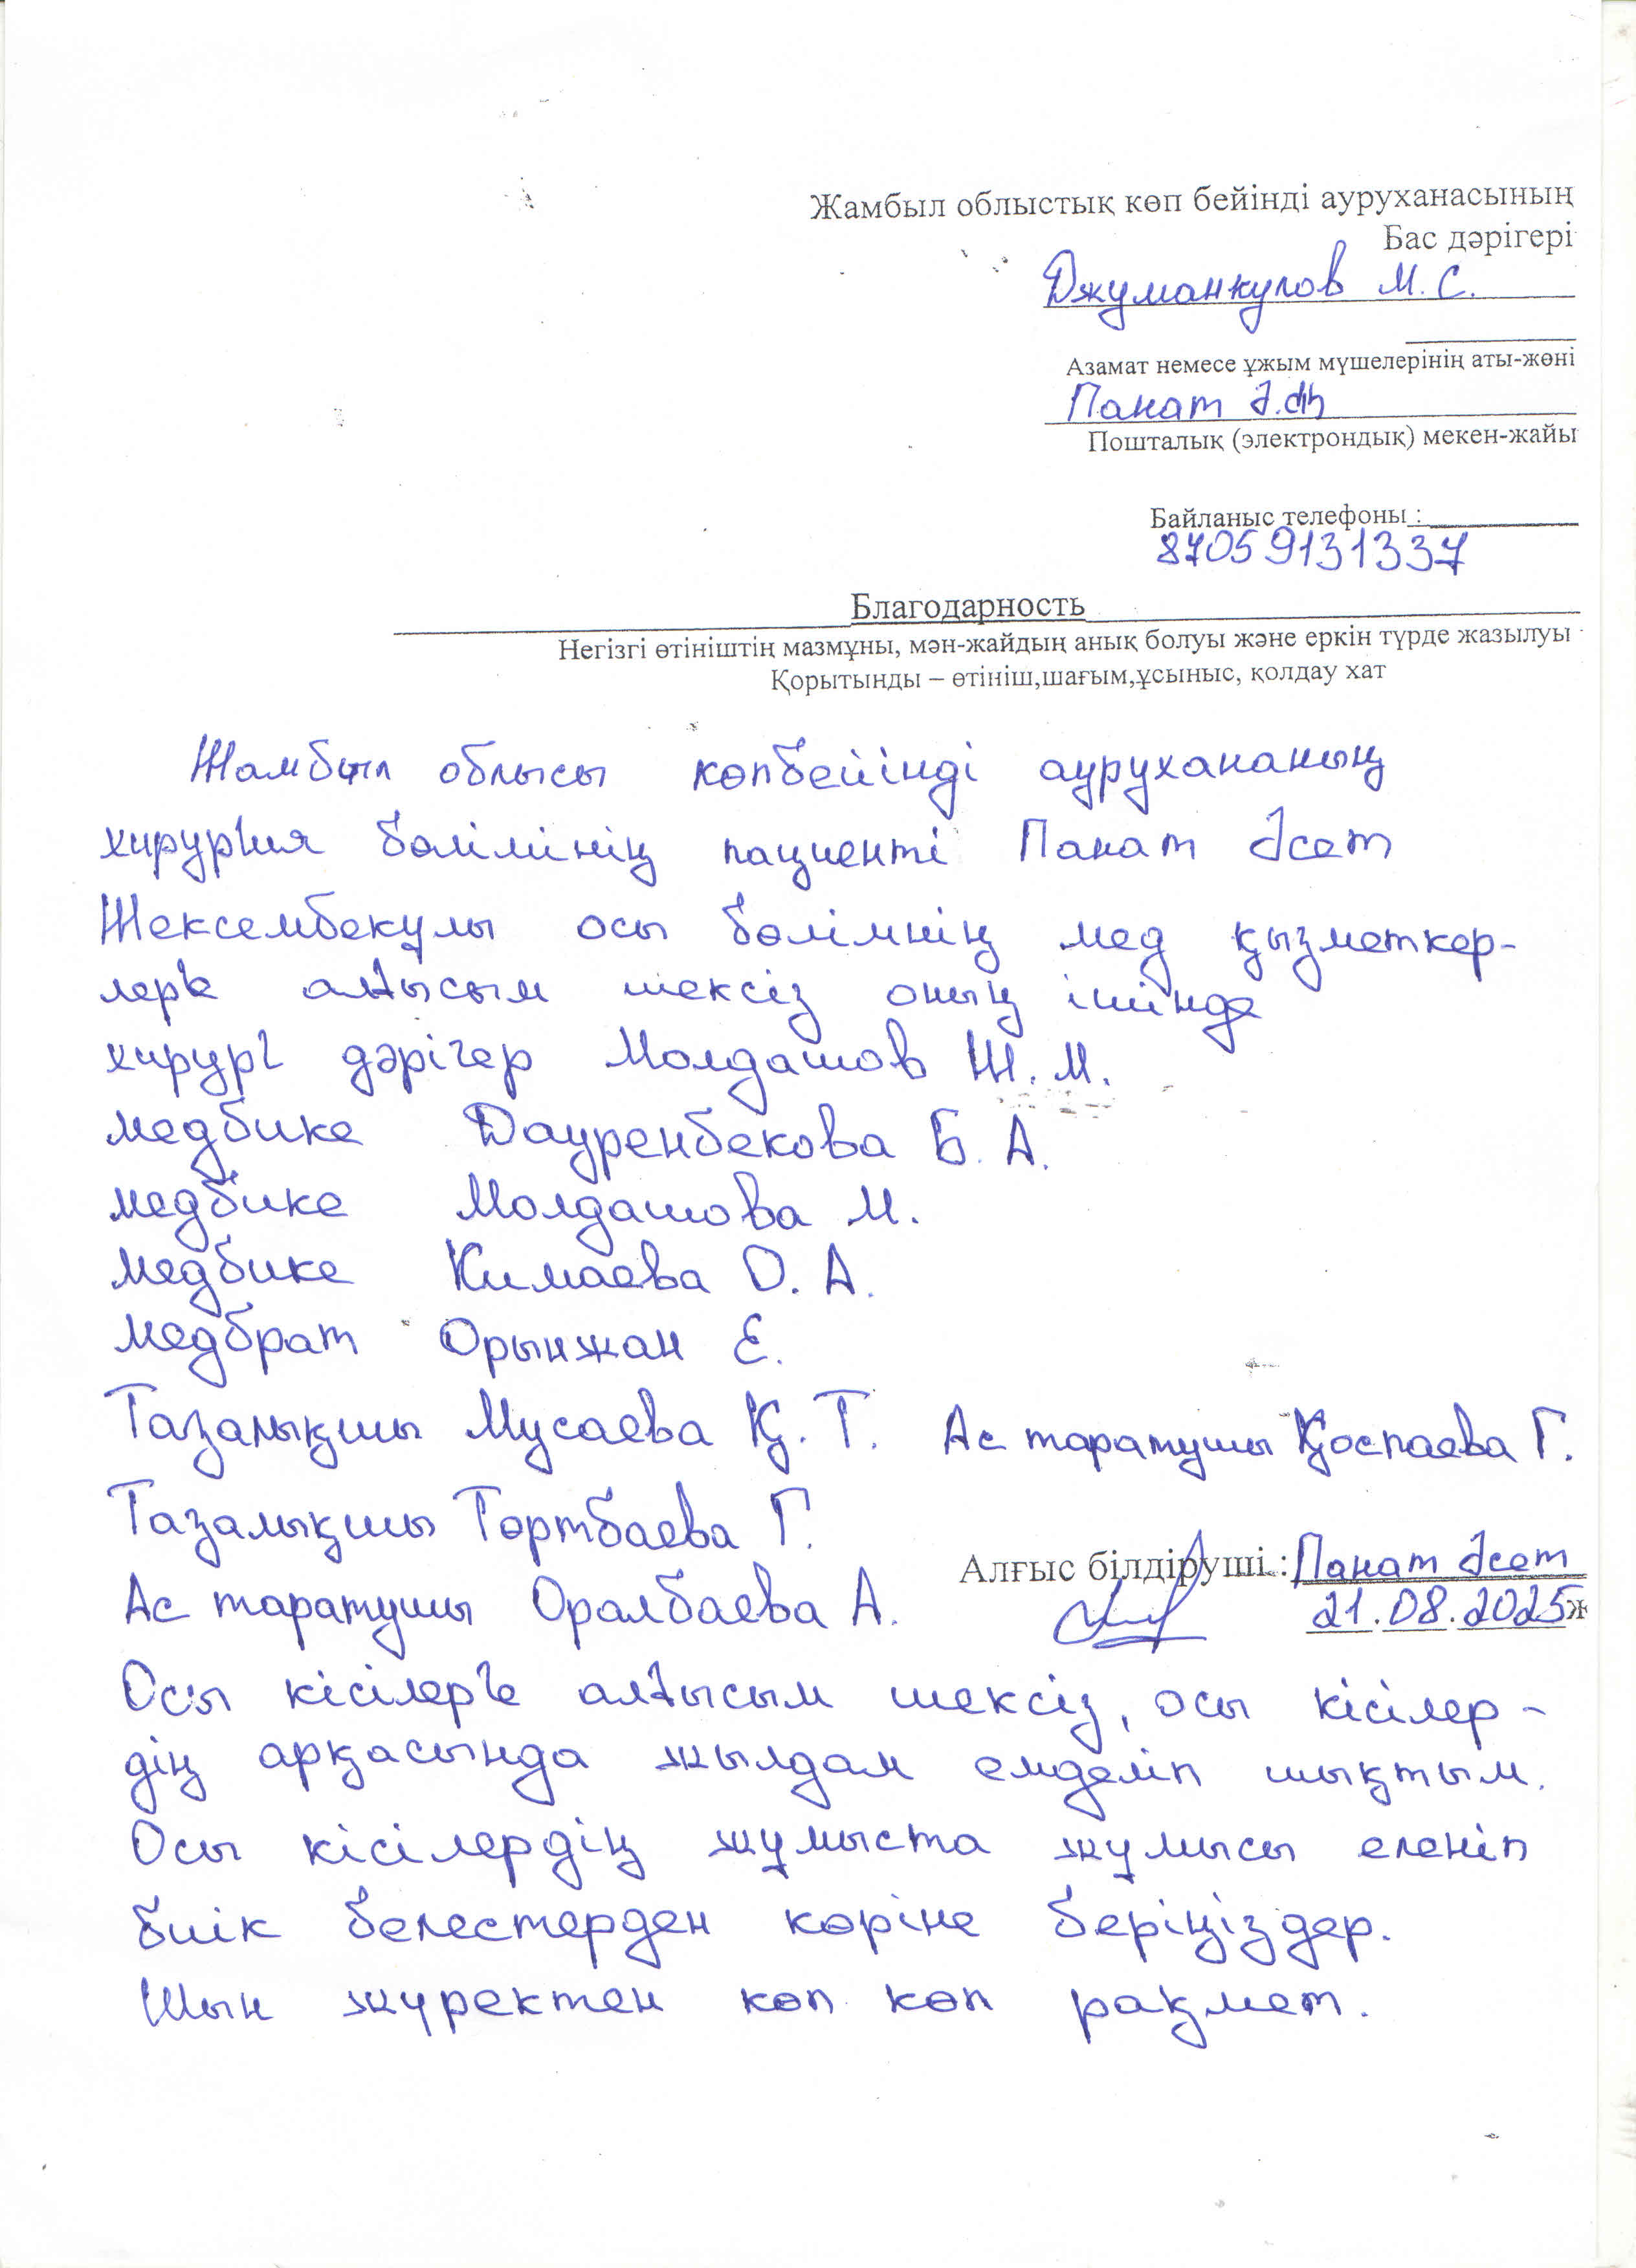 Жамбыл облыстық көп бейінді ауруханасының
Бас дәрігері
Джуманкулов М. С.
Азамат немесе ұжым мүшелерінің аты-жөні
Панат Ә.Ж
Пошталық (электрондық) мекен-жайы
Байланыс телефоны :
87059131337
Благодарность
Негізгі өтініштің мазмұны, мән-жайдың анық болуы және еркін түрде жазылуы
Қорытынды – өтініш,шағым,ұсыныс, қолдау хат
Жамбыл облысы көпбейінді аурухананың
хирургия бөлімінің пациенті Панат Әсет
Жексембекұлы осы бөлімнің мед қызметкер-
лерге алғысым шексіз оның ішінде
хирург дәрігер Молдашов Ж. М.
медбике Дауренбекова Б. А.
медбике Молдашова М.
медбике Кимаева О. А.
медбрат Орынжан Е.
Тазалықшы Мусаева Қ. Т. Ас таратушы Қоспаева Г.
Тазалықшы Төртбаева Г.
Алғыс білдіруші.: Панат Әсет
Ас таратушы Оралбаева А.
21.08.2025ж
Осы кісілерге алғысым шексіз, осы кісілер-
дің арқасында жылдам емделіп шықтым.
Осы кісілердің жұмыста жұмысы еленіп
биік белестерден көріне беріңіздер.
Шын жүректен көп көп рақмет.